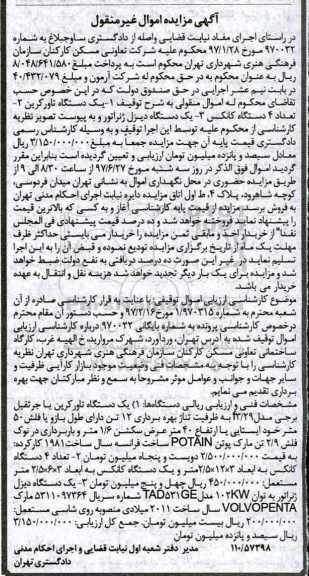 آگهی مزایده اموال غیرمنقول
در راستای اجرای مفاد نیابت قضایی واصله از دادگستری ساوجبلاغ به شماره
۹۷۰۰۳۲ مورخ ۹۷/۱/۲۸ محکوم علیه شرکت تعاونی مسکن کارکنان سازمان
فرهنگی هنری شهرداری تهران محکوم است به پرداخت مبلغ ۸/۰۴۸/۶۴۱/۵۸۰
ریال به عنوان محکوم به در حق محکوم له شرکت آزمون و مبلغ ۴۰/۴۳۲/۰۷۹
ریال بابت نیم عشر اجرایی در حق صندوق دولت که در این خصوص حسب
تقاضای محکوم له اموال منقولی به شرح توقیف ۱-یک دستگاه تاورکرین ۲-
تعداد ۴ دستگاه کانکس ۳- یک دستگاه دیزل ژنراتور و به پیوست تصویر نظریه
کارشناسی از محکوم علیه توسط این اجرا توقیف و به وسیله کارشناس رسمی
دادگستری قیمت پایه آن جهت مزایده جمعا به مبلغ ۳/۱۵۰/۰۰۰/۰۰۰ ریال
معادل سیصد و پانزده میلیون تومان ارزیابی و تعیین گردیده است بنابراین مقرر
گردید اموال فوق الذکر در روز سه شنبه مورخ ۹۷/۶/۲۷ از ساعت ۸/۳۰ الی ۹ از
طریق مزایده حضوری در محل نگهداری اموال به نشانی تهران میدان فردوسی،
کوچه شاهرود، پلاک ۴، ط اول اتاق مزایده دایره نیابت اجرای احکام مدنی تهران
به فروش برسد. مزایده از قیمت پایه کارشناسی آغاز و به کسی که بالاترین قیمت
را پیشنهاد نماید فروخته خواهد شد و ده درصد قیمت پیشنهادی فی المجلس
نقدا" از خریدار اخذ و مابقی ثمن مزایده را خریدار می بایستی حداکثر ظرف
مهلت یک ماه از تاریخ برگزاری مزایده تودیع نموده و قبض آن را به این اجرا
تسلیم نماید در غیر این صورت ده درصد دریافتی به نفع دولت ضبط خواهد
شد و مزایده برای یک بار دیگر تجدید خواهد شد هزینه نقل و انتقال به عهده
خریدار می باشد.
موضوع کارشناسی ارزیابی اموال توقیفی: با عنایت به قرار کارشناسی صادره از آن
شعبه محترم به شماره ۱/۹۷۰۳۱۵ مورخ ۹۷/۲/۱۶ و حسب دستور آن مقام محترم
درخصوص کارشناسی پرونده به شماره بایگانی ۹۷۰۰۲۲ درباره کارشناسی ارزیابی
اموال توقیف شده به آدرس تهران، وردآورد، شهرک مروارید، خ الهیه غرب، کارگاه
ساختمانی تعاونی مسکن کارکنان سازمان فرهنگی هنری شهرداری تهران نظریه
کارشناسی را با توجه به مشخصات فنی وضعیت موجود بازار کارآیی ظرفیت و
سایر جهات و جوانب و عوامل موثر مشروحا به سمع و نظر سازتکان جهت بهره
برداری تقدیم می نمایم.
مشخصات فنی و ارزیابی ریالی دستگاه‌ها: ۱) یک دستگاه تاورکرین یا جرثقیل
برجی مدل f۳/۲۹ به ظرفیت تناژ بهره برداری ۱۲ تن دارای طول بازو یا فلش ۵۰
متر خود ایستایی یا ارتفاع ۴۰ متر عرض سکشن ۱/۶ متر و باربرداری در نوک
فلش ۲/۹ تن مارک پوتن POTAIN ساخت فرانسه سال ساخت ۱۹۸۱ کارکرده:
به قیمت ۲/۵۰۰/۰۰۰/۰۰۰ دویست و پنجاه میلیون تومان ۲- تعداد ۴ دستگاه
کانکس به ابعاد ۲/۵×۱۲×۳ متر و یک دستگاه کانکس به ابعاد ۲/۵×۶×۳ متر
مستعمل: ۴۵۰/۰۰۰/۰۰۰ ریال چهل و پنج میلیون تومان ۳- یک دستگاه دیزل
ژنراتور به توان ۱۰۲KW مدل TAD۵۳۱GE شماره سریال ۵۳۱۱۰۹۷۳۶۴ مارک
VOLVOPENTA سال ساخت ۲۰۱۱ میلادی منصوبه روی شاسی مستعمل:
۲۰۰/۰۰۰/۰۰۰ ریال بیست میلیون تومان. جمع کل ارزیابی: ۳/۱۵۰/۰۰۰/۰۰۰
ریال سیصد و پانزده میلیون تومان
مدیر دفتر شعبه اول نیابت قضایی و اجرای احکام مدنی
۱۱۰/۵۷۳۹۸
دادگستری تهران